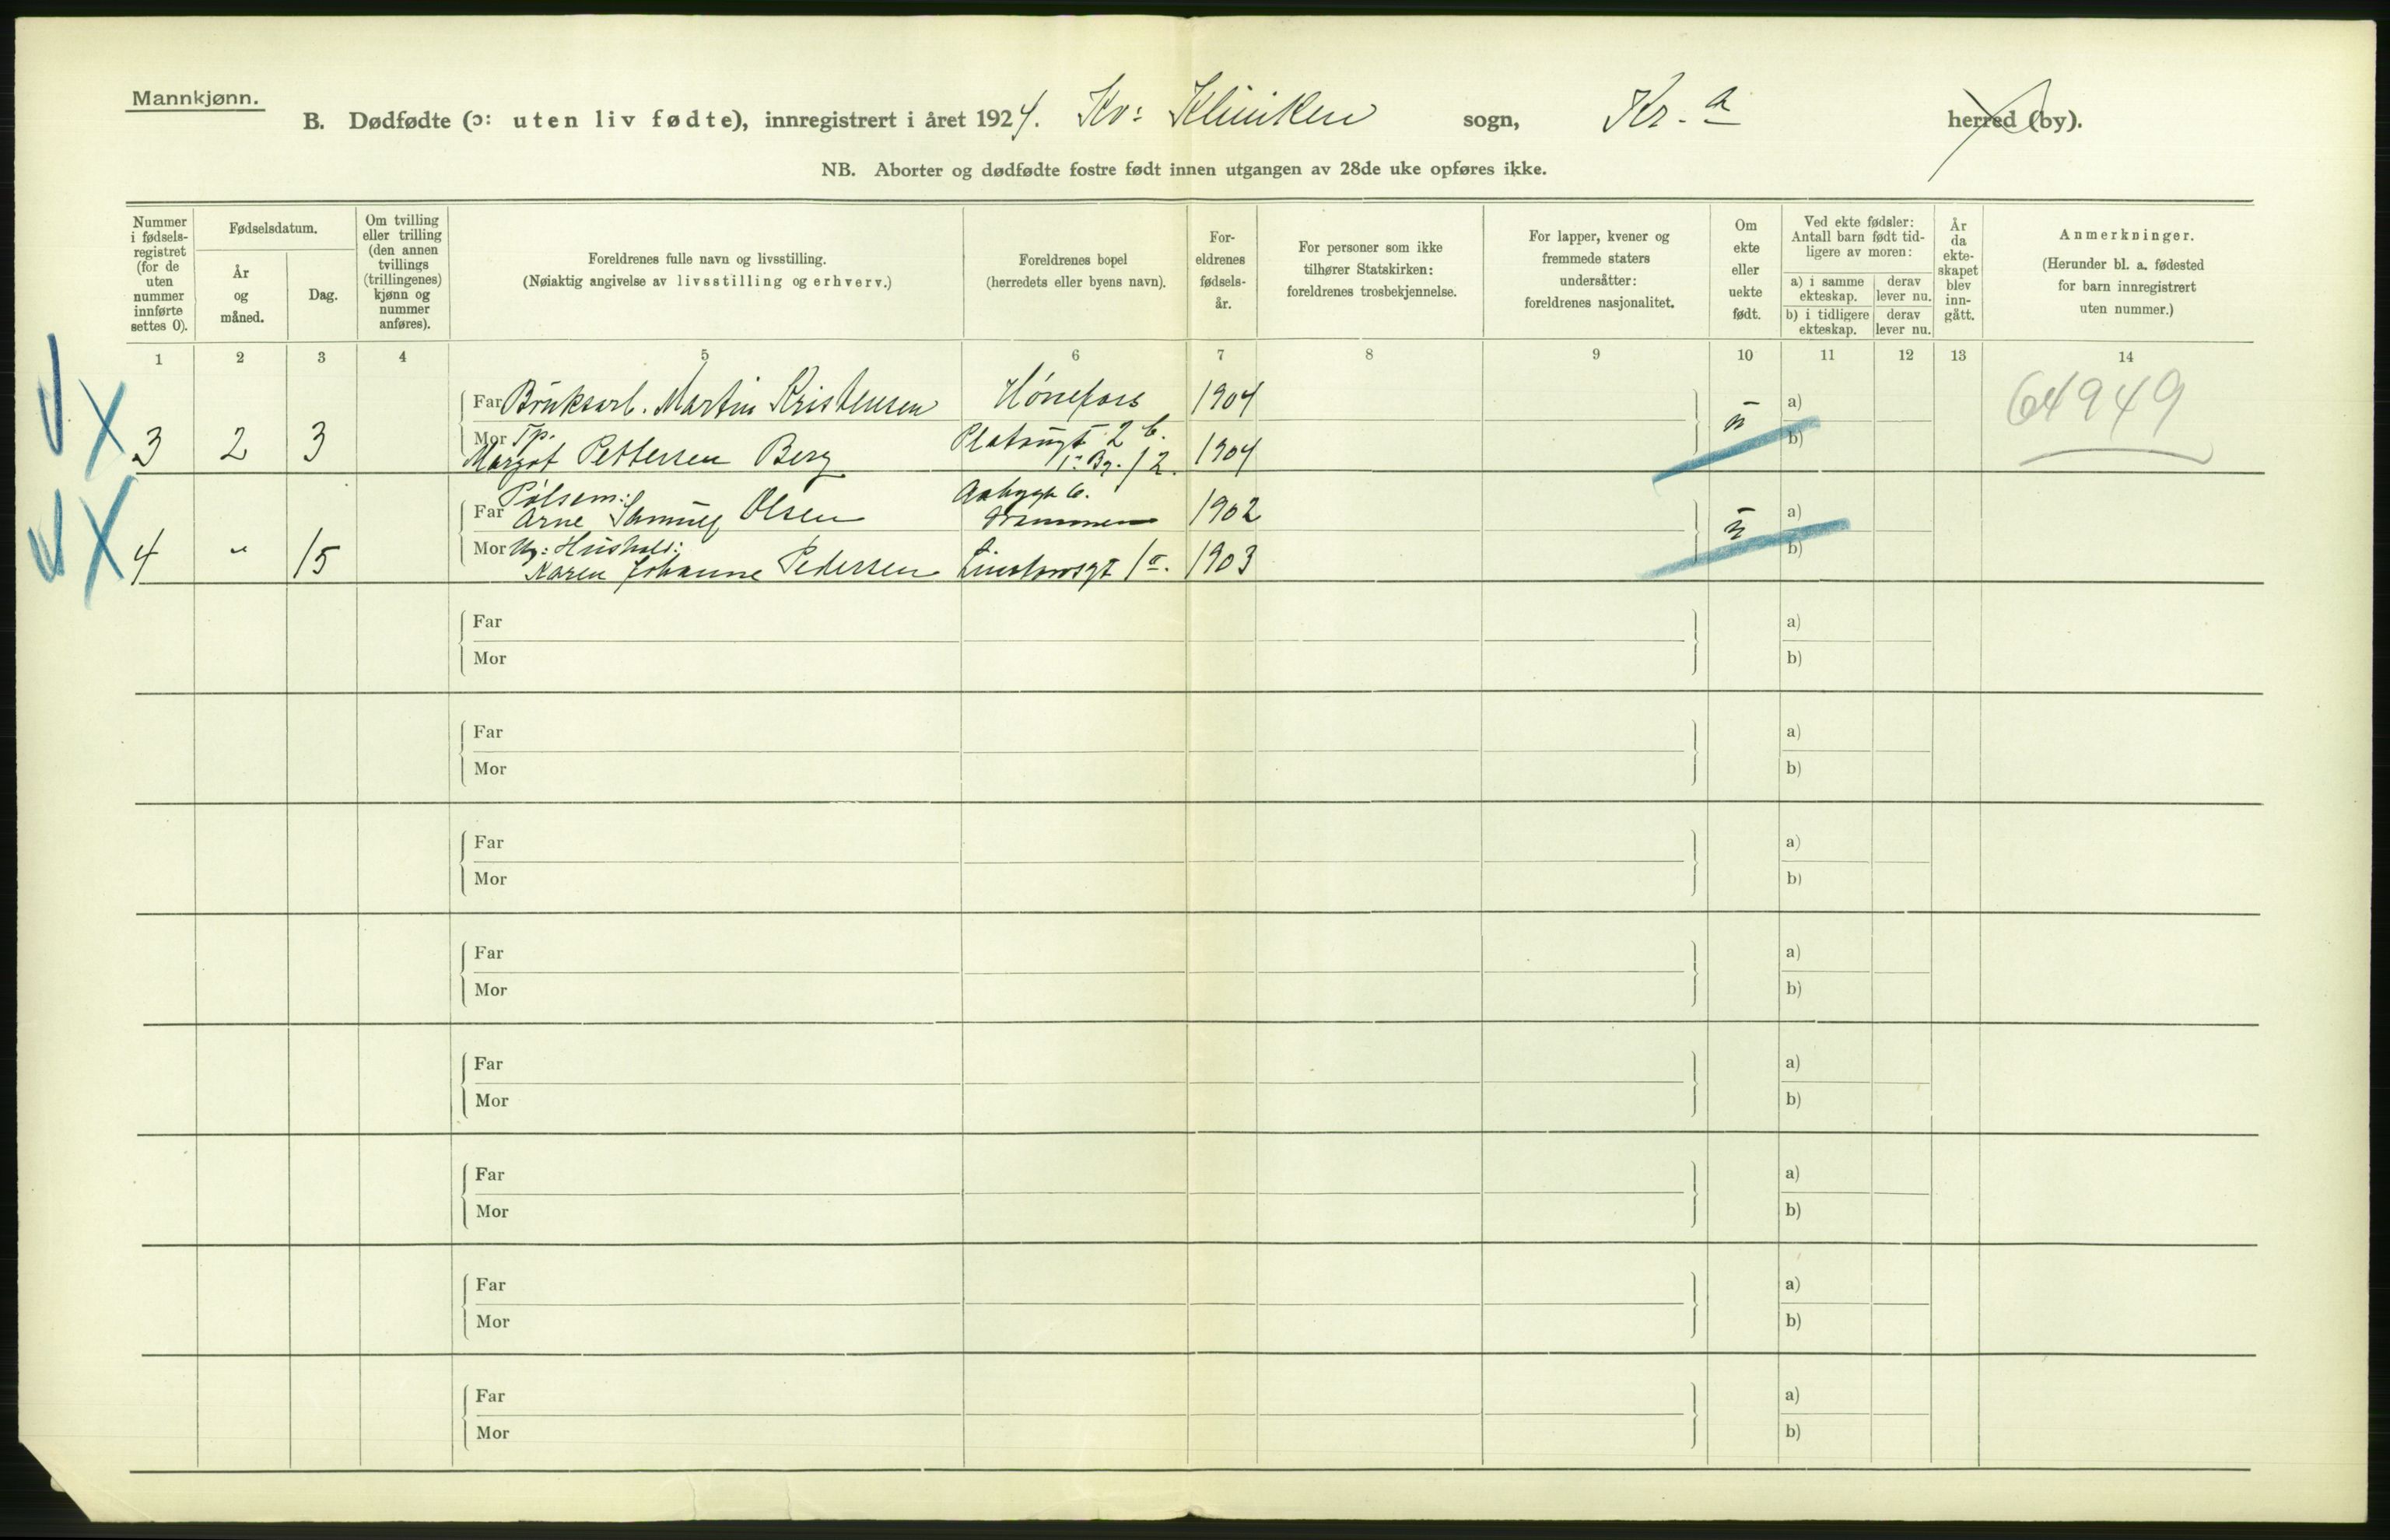 Mannkjønn.
B. Dødfødte (ɔ: uten liv fødte), innregistrert i året 1924. Kv: Kliniken sogn, Kr.a herred (by).
NB. Aborter og dødfødte fostre født innen utgangen av 28de uke opføres ikke.
Nummer i fødsels-registret (for de uten nummer innførte settes 0).
Fødselsdatum.
År og måned.
Dag.
Om tvilling eller trilling (den annen tvillings (trillingenes) kjønn og nummer anføres).
Foreldrenes fulle navn og livsstilling.
(Nøiaktig angivelse av livsstilling og erhverv.)
Foreldrenes bopel
(herredets eller byens navn).
For-eldrenes fødsels-år.
For personer som ikke tilhører Statskirken: foreldrenes trosbekjennelse.
For lapper, kvener og fremmede staters undersåtter: foreldrenes nasjonalitet.
Om ekte eller uekte født.
Ved ekte fødsler: Antall barn født tid-ligere av moren:
a) i samme ekteskap.
derav lever nu.
b) i tidligere ekteskap.
derav lever nu.
År da ekte-skapet blev inn-gått.
Anmerkninger.
(Herunder bl. a. fødested for barn innregistrert uten nummer.)
1 2 3 4 5 6 7 8 9 10 11 12 13 14
Far Bruksarb. Martin Kristensen Hønefoss 1904 a) 64949
3 2 3 Mor Tp. Platougt 2 b. ū b)
Margot Pettersen Berg 1904
Pølsem:
Far Arne Olsen Drammen 1902 a)
4 " 15 Mor Ug: Hushold: ū b)
Karen Johanne Pedersen Linstowsgt 1 1903
Far a)
Mor b)
Far a)
Mor b)
Far a)
Mor b)
Far a)
Mor b)
Far a)
Mor b)
Far a)
Mor b)
Far a)
Mor b)
Far a)
Mor b)